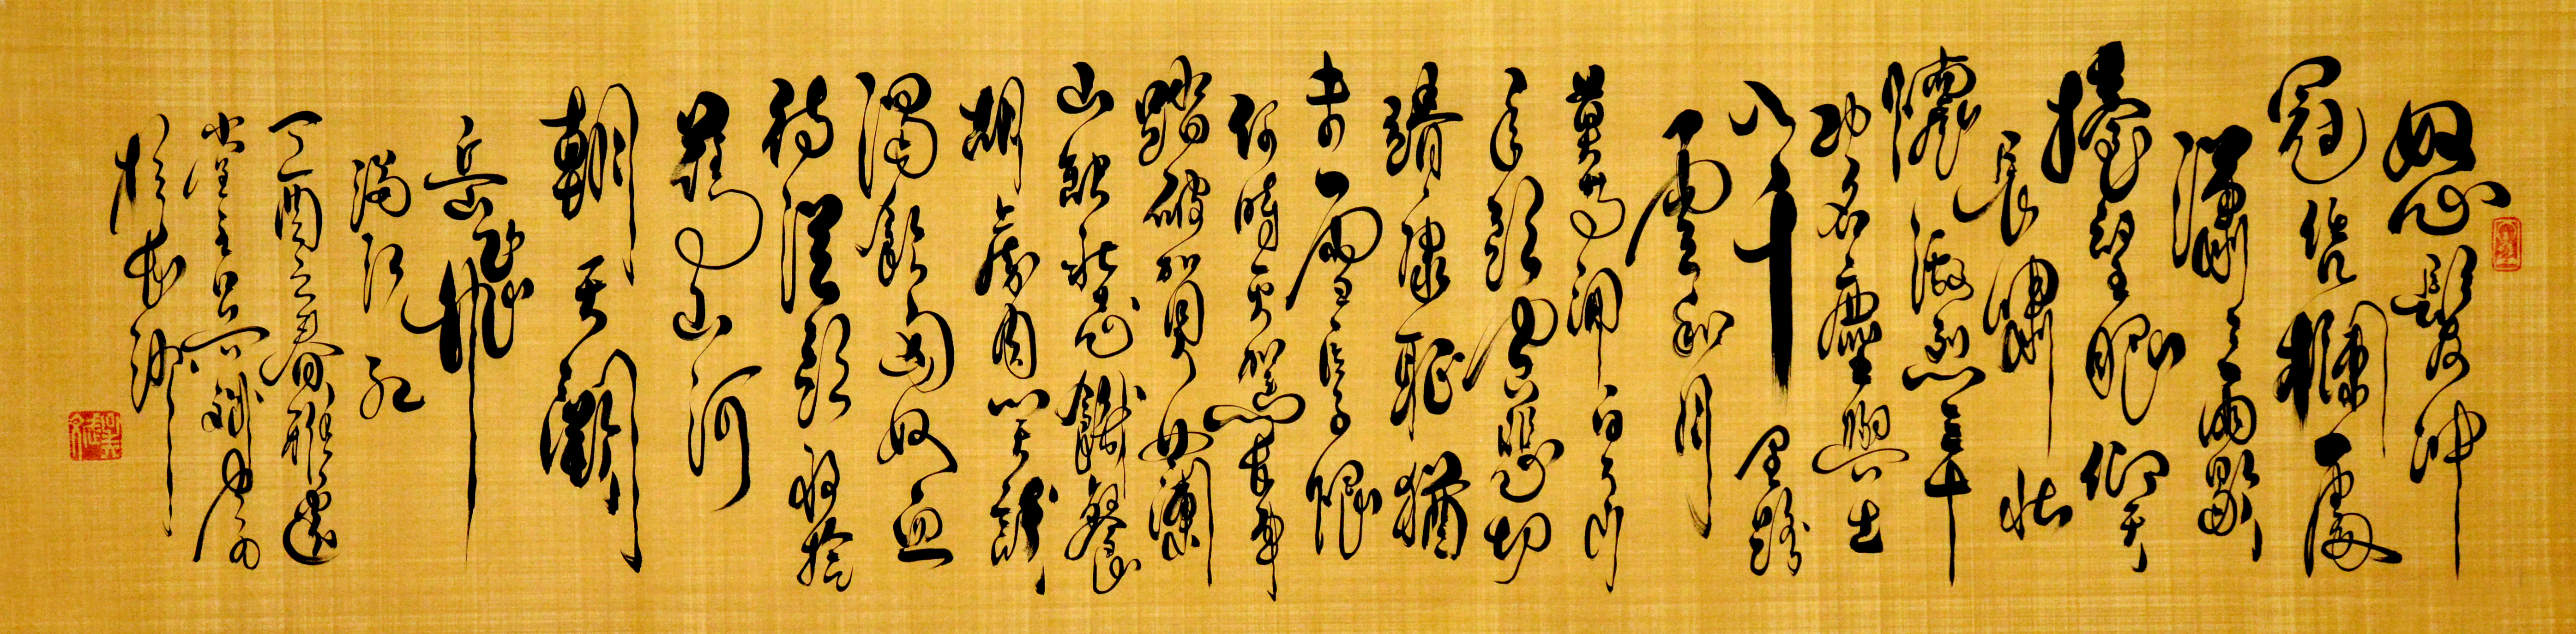 怒髮冲
冠凭欄處
瀟瀟雨歇
擡望眼仰天
長嘯壯
懷激烈三十
功名塵與土
八千里路
雲和月
莫等閒白了少
年頭空悲切
靖康耻猶
未雪臣子恨
何時灭駕長車
踏破賀蘭
山缺壯志飢餐
胡虜肉笑談
渴飲匈奴血
待從頭收拾
舊山河
朝天闕
岳飛
滿江紅
丁酉之春雅
堂主
於長沙